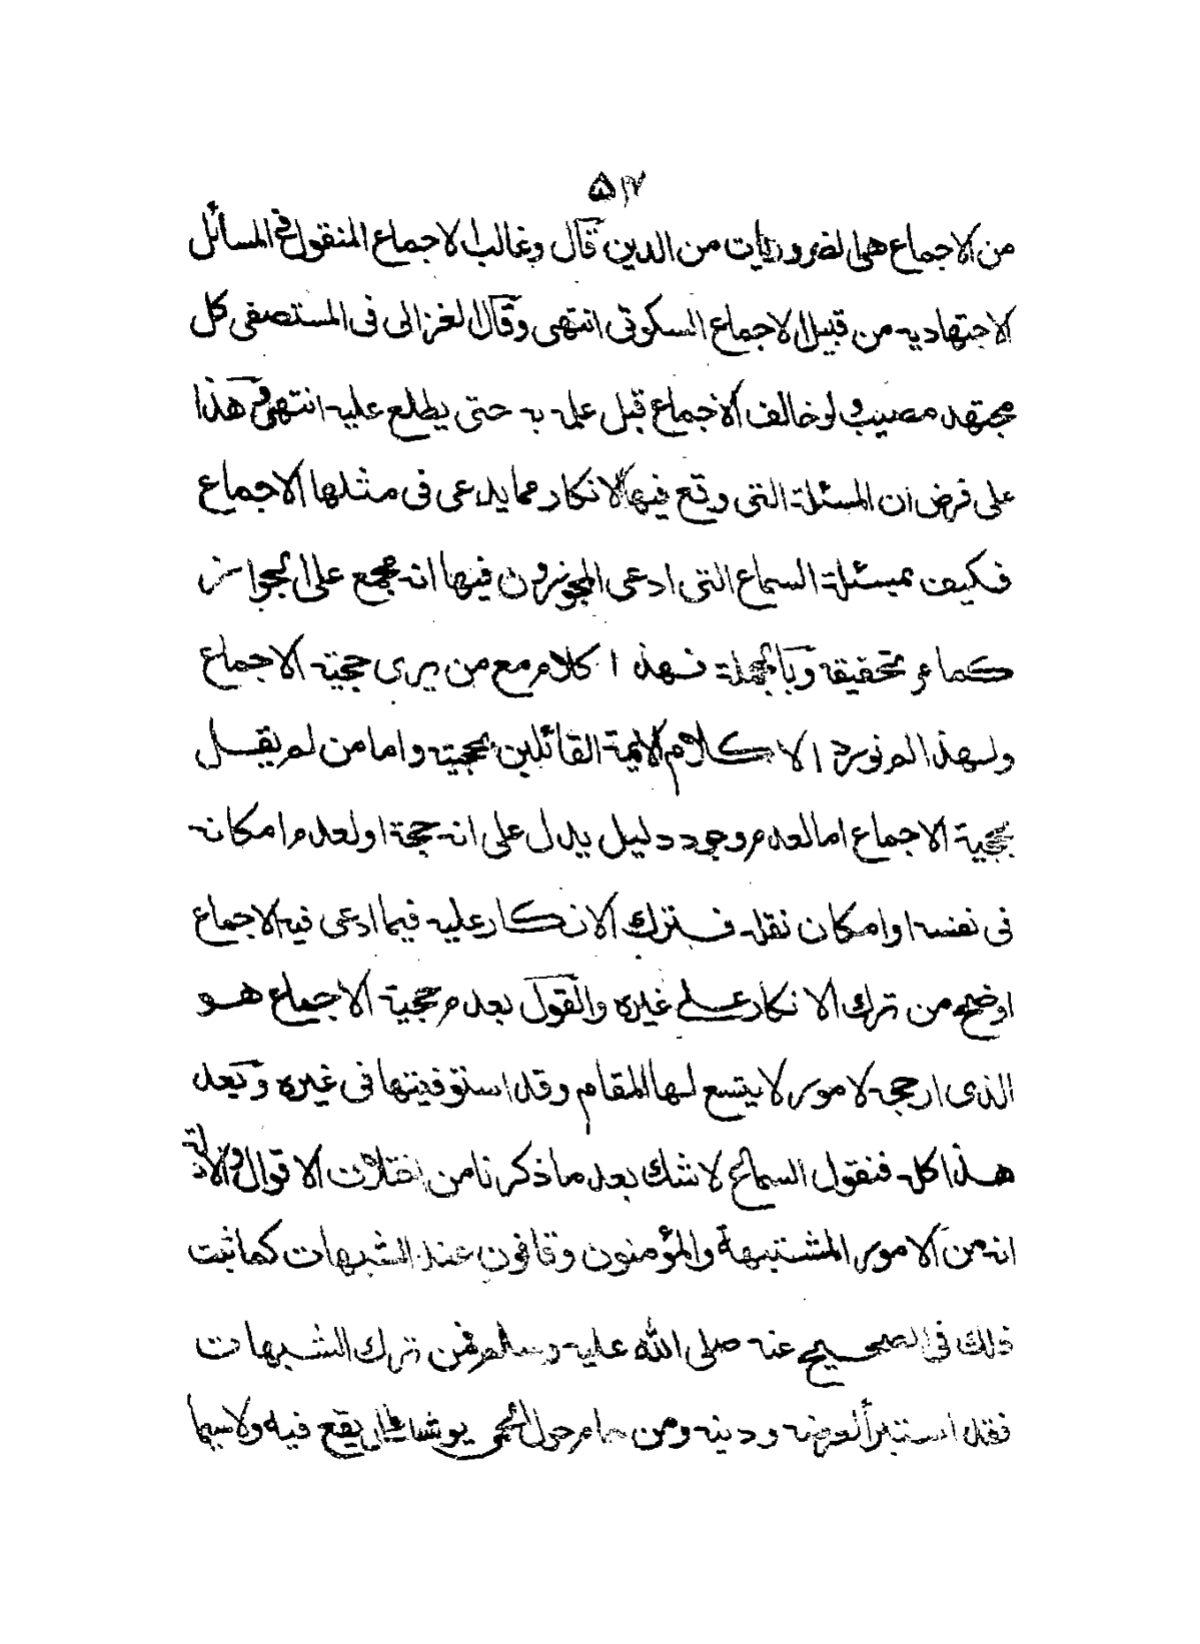 من الاجماع هى الضروريات من الدين قال وغالب الاجماع المنقول فى المسائل
الاجتهاديه من قبيل الاجماع السكوتى انتهى وقال الغزالى فى المستصفى كل
مجتهد مصيب ولو خالف الاجماع قبل علمه به حتى يطلع عليه انتهى وهذا
على فرض ان المسئلة التى وقع فيها الانكار مما يدعى فى مثلها الاجماع
فكيف بمسئلة السماع التى ادعى المجوزون فيها انه مجمع على الجواز
كما مر تحقيقه وبالجملة فهذا كلام مع من يرى حجية الاجماع
ولهذا لم نورد الا كلام الائمة القائلين بحجيته واما من لم يقل
بحجية الاجماع اما لعدم وجود دليل يدل على انه حجة او لعدم امكانه
فى نفسه او امكان نقله فترك الانكار عليه فيما ادعى فيه الاجماع
اوضح من ترك الانكار على غيره والقول بعدم حجية الاجماع هو
الذى ارجحه لامور لا يتسع لها المقام وقد استوفيتها فى غيره وبعد
هذا كله فنقول السماع لا شك بعد ما ذكرنا من اختلاف الاقوال والادلة
انه من الامور المشتبهة والمؤمنون وقافون عند الشبهات كما ثبت
ذلك فى الصحيح عنه صلى الله عليه وسلم فمن ترك الشبهات
فقد استبرأ لعرضه ودينه ومن حام حول الحمى يوشك ان يقع فيه ولا سيما